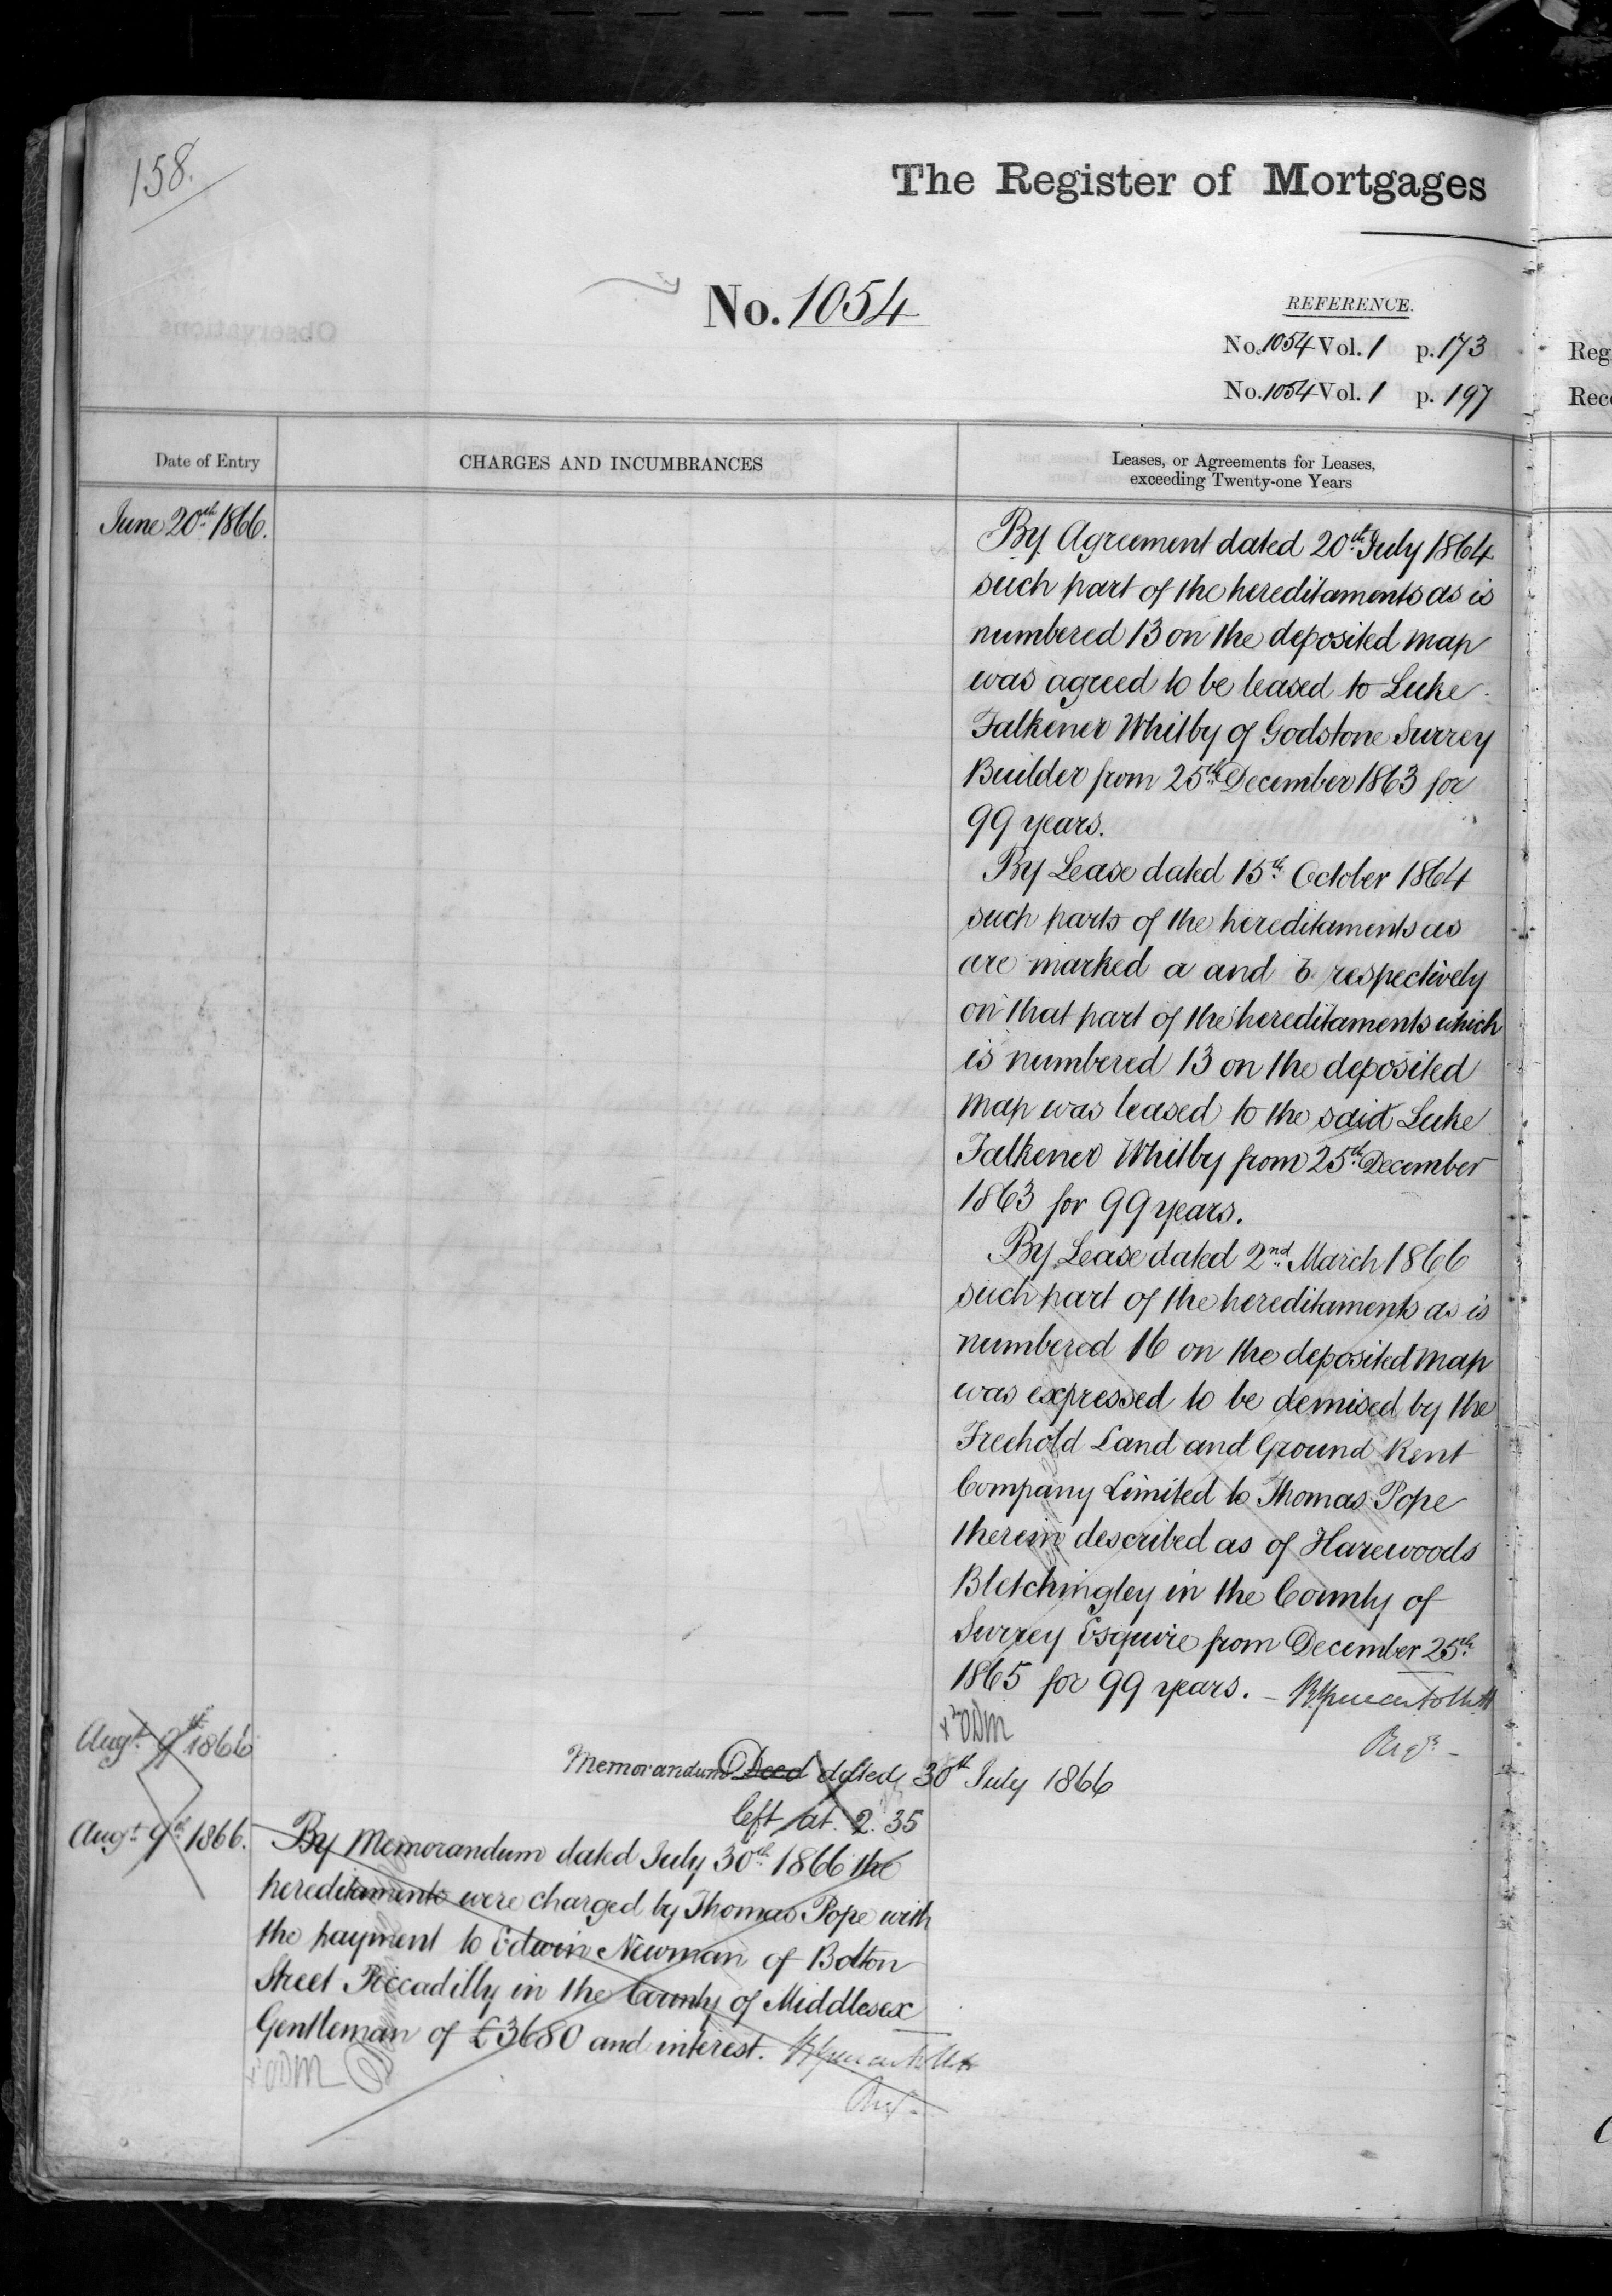 158.
The Register of Mortgages
No. 1054
REFERENCE.
No. 1054 Vol. 1 p. 173
No. 1054 Vol. 1 p. 197
Reg
Rec
Date of Entry
CHARGES AND INCUMBRANCES
Leases, or Agreements for Leases,
exceeding Twenty-one Years
June 20th 1866.
By Agreement dated 20th July 1864
such part of the hereditaments as is
numbered 13 on the deposited map
was agreed to be leased to Luke
Falkener Whitby of Godstone Surrey
Builder from 25th December 1863 for
99 years.
By Lease dated 15th October 1864
such parts of the hereditaments as
are marked a and b respectively
on that part of the hereditaments which
is numbered 13 on the deposited
map was leased to the said Luke
Falkener Whitby from 25th December
1863 for 99 years.
By Lease dated 2nd March 1866
such part of the hereditaments as is
numbered 16 on the deposited map
was expressed to be demised by the
Freehold Land and Ground Rent
Company Limited to Thomas Pope
therein described as of Harewoods
Bletchingley in the County of
Surrey Esquire from December 25th
1865 for 99 years.
Augt. 9th 1866
Memorandum Deed dated 30th July 1866
left at 2.35
Augt. 9th 1866.
By Memorandum dated July 30th 1866 the
hereditaments were charged by Thomas Pope with
the payment to Edwin Newman of Bolton
Street Piccadilly in the County of Middlesex
Gentleman of £3680 and interest.